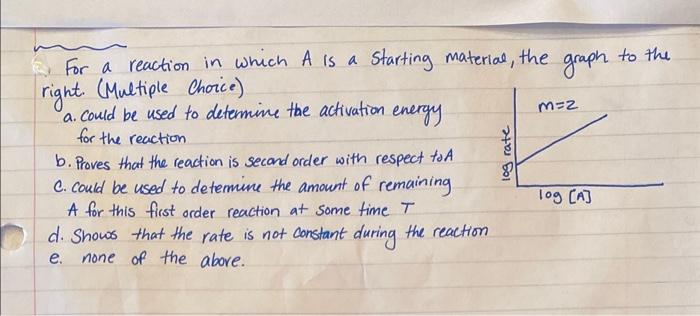 For a reaction in which A is a starting material, the graph to the
right. (Multiple Choice)
a. Could be used to determine the activation energy
for the reaction
b. Proves that the reaction is second order with respect to A
C. Could be used to detemine the amount of remaining
A for this first order reaction at some time T
d. Shows that the rate is not constant during the reaction
e. none of the above.
m=2
log rate
log [A]